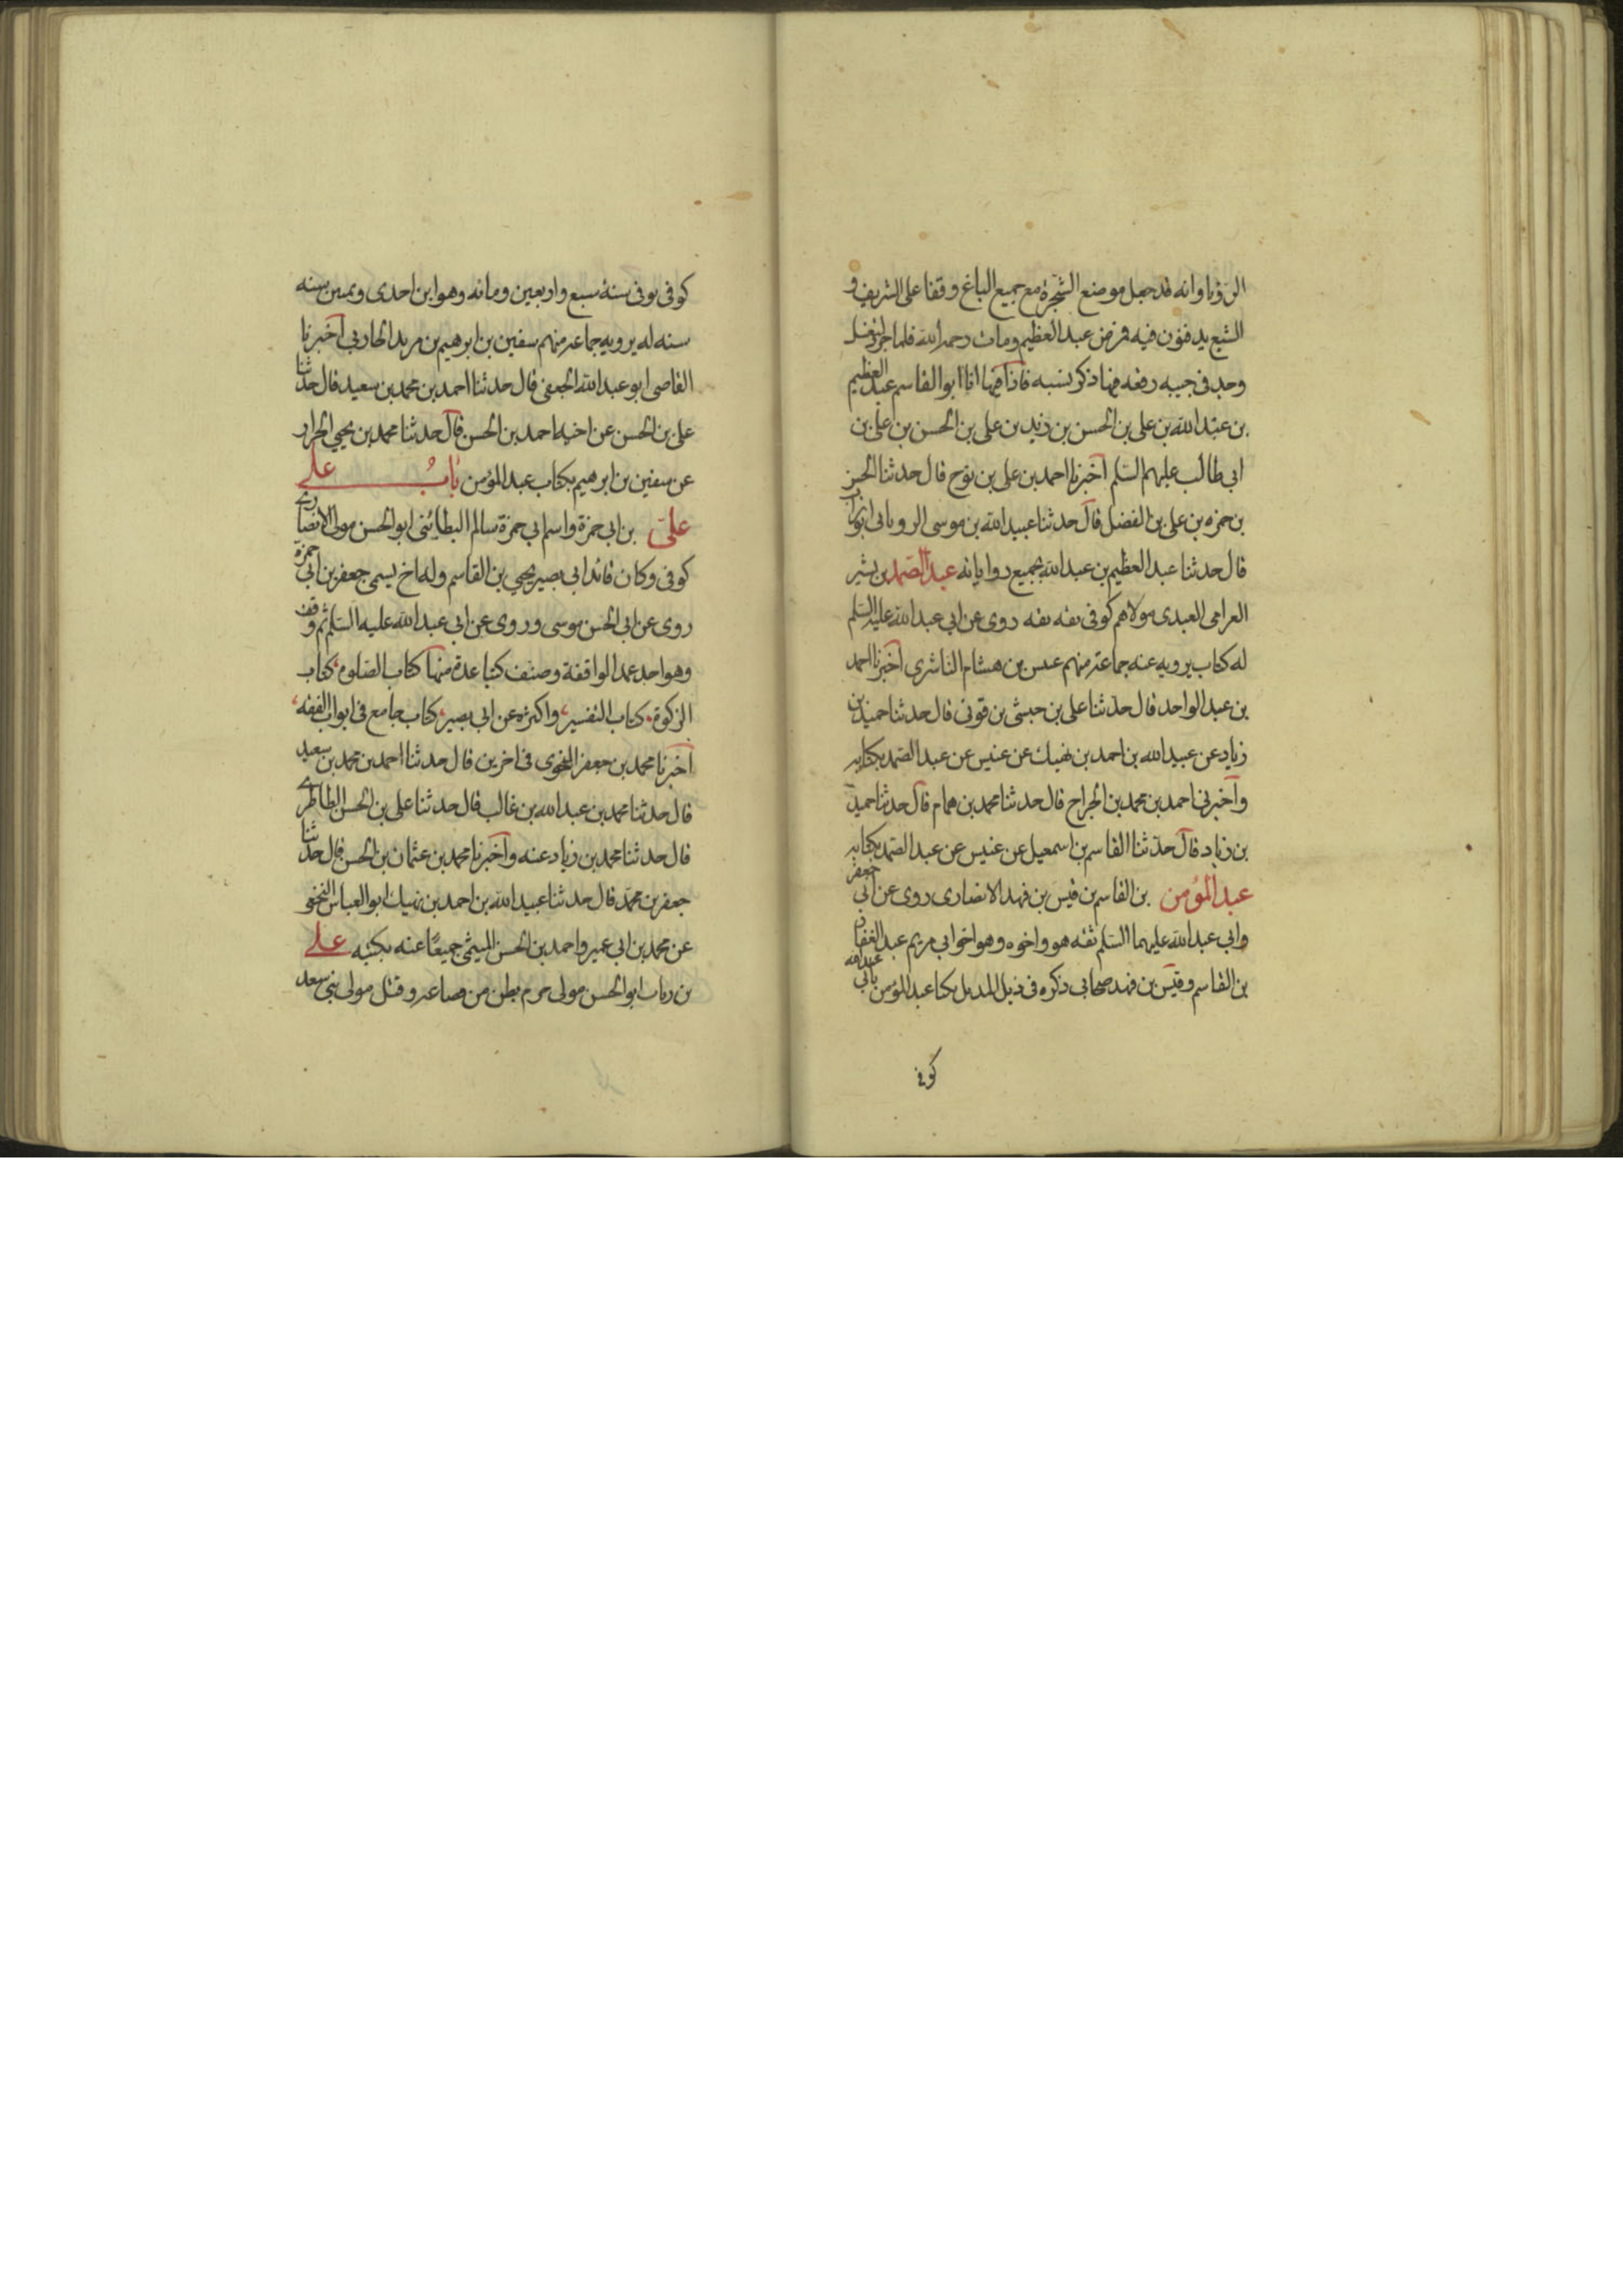 الرؤيا وانه قد جعل موضع الشجرة مع جميع الباغ وقفا على الشريف و
الشيع يدفنون فيه فرض عبد العظيم ومات رحمه الله فلما جرد ليغسل
وجد في جيبه رقعه فيها ذكر نسبه فاذا فيها انا ابو القاسم عبد العظيم
بن عبد الله بن على بن الحسن بن زيد بن على بن الحسن بن على بن
ابى طالب عليهم السلم اخبرنا احمد بن على بن نوح قال حدثنا الحسن
بن حمزه بن على بن الفضل قال حدثنا عبيد الله بن موسى الرويانى ابو تراب
قال حدثنا عبد العظيم بن عبد الله بجميع رواياته عبد الصمد بن بشير
العرامى العبدى مولاهم كوفى ثقه ثقه روى عن ابى عبد الله عليه السلم
له كتاب يرويه عنه جماعة منهم عبس بن هشام الناشرى اخبرنا احمد
بن عبد الواحد قال حدثنا على بن حبشى بن قونى قال حدثنا حميد بن
زياد عن عبيد الله بن احمد بن نهيك عن عنبس عن عبد الصمد بكتابه
واخبرنى احمد بن محمد بن الجراح قال حدثنا محمد بن همام قال حدثنا حميد
بن زياد قال حدثنا القاسم بن اسمعيل عن عنبس عن عبد الصمد بكتابه
عبد المؤمن بن القاسم بن قيس بن فهد الانصارى روى عن ابى جعفر
وابى عبد الله عليهما السلم ثقه هو واخوه وهو اخو ابى مريم عبد الغفار
بن القاسم وقيس بن فهد صحابى ذكره فى ذيل المذيل يكنا عبد المؤمن بابى عبد الله
كوفى
كوفى توفى سنة سبع واربعين ومائه وهو ابن احدى وثمنين سنه
سنه له يرويه جماعة منهم سفين بن ابرهيم بن مريد الحاربى اخبرنا
القاضى ابو عبد الله الجعفى قال حدثنا احمد بن محمد بن سعيد قال حدثنا
على بن الحسن عن اخيه احمد بن الحسن قال حدثنا محمد بن يحيى الجرار
عن سفين بن ابرهيم بكتاب عبد المؤمن باب على
على بن ابى حمزة واسم ابى حمزة سالم البطائنى ابو الحسن مولى الانصارى
كوفى وكان قائد ابى بصير يحيى بن القاسم وله اخ يسمى جعفر بن ابى حمزة
روى عن ابى الحسن موسى وروى عن ابى عبد الله عليه السلم ثم وقف
وهو احد عمد الواقفة وصنف كتبا عدة منها كتاب الصلوة كتاب
الزكوة كتاب التفسير واكثره عن ابى بصير كتاب جامع فى ابواب الفقه
اخبرنا محمد بن جعفر النحوى فى اخرين قال حدثنا احمد بن محمد بن سعيد
قال حدثنا محمد بن عبد الله بن غالب قال حدثنا على بن الحسن الطاطرى
قال حدثنا محمد بن زياد عنه واخبرنا محمد بن عثمان بن الحسن قال حدثنا
جعفر بن محمد قال حدثنا عبيد الله بن احمد بن نهيك ابو العباس النخعى
عن محمد بن ابى عمير واحمد بن الحسن الميثمى جميعا عنه بكتبه على
بن رباب ابو الحسن مولى جرم بطن من قضاعة وقيل مولى بنى سعد